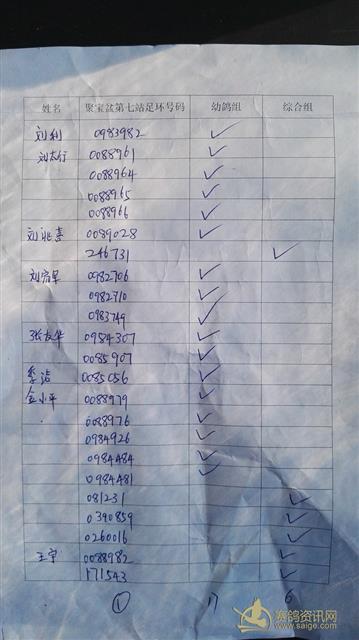 姓名 聚宝盆第七站足环号码 幼鸽组 综合组
刘利 0983982 ✓
刘太行 0088961 ✓
0088964 ✓
0088965 ✓
0088966 ✓
刘兆喜 0089028 ✓
246731 ✓
0982706 ✓
0982710 ✓
0983749 ✓
张友华 0984307 ✓
0085907 ✓
李洁 0085056 ✓
金小平 0088979 ✓
0088976 ✓
0984926 ✓
0984484 ✓
0984481 ✓
081231 ✓
0340859 ✓
0260016 ✓
王宇 0088982 ✓
171543 ✓
① 17 6
赛鸽资讯网
www.saige.com